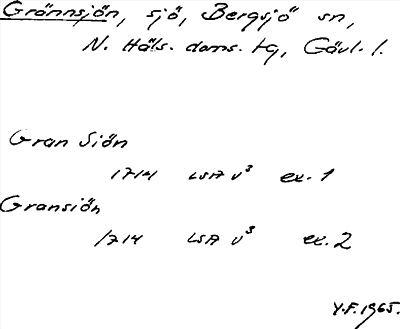 Grönnsjön, sjö, Bergsjö sn,
N. Häls. doms. tg, Gävl. l.
Gran Siön
1714 LSA V³ ex. 1
Gransiön
1714 LSA V³ ex. 2
Y.F. 1965.